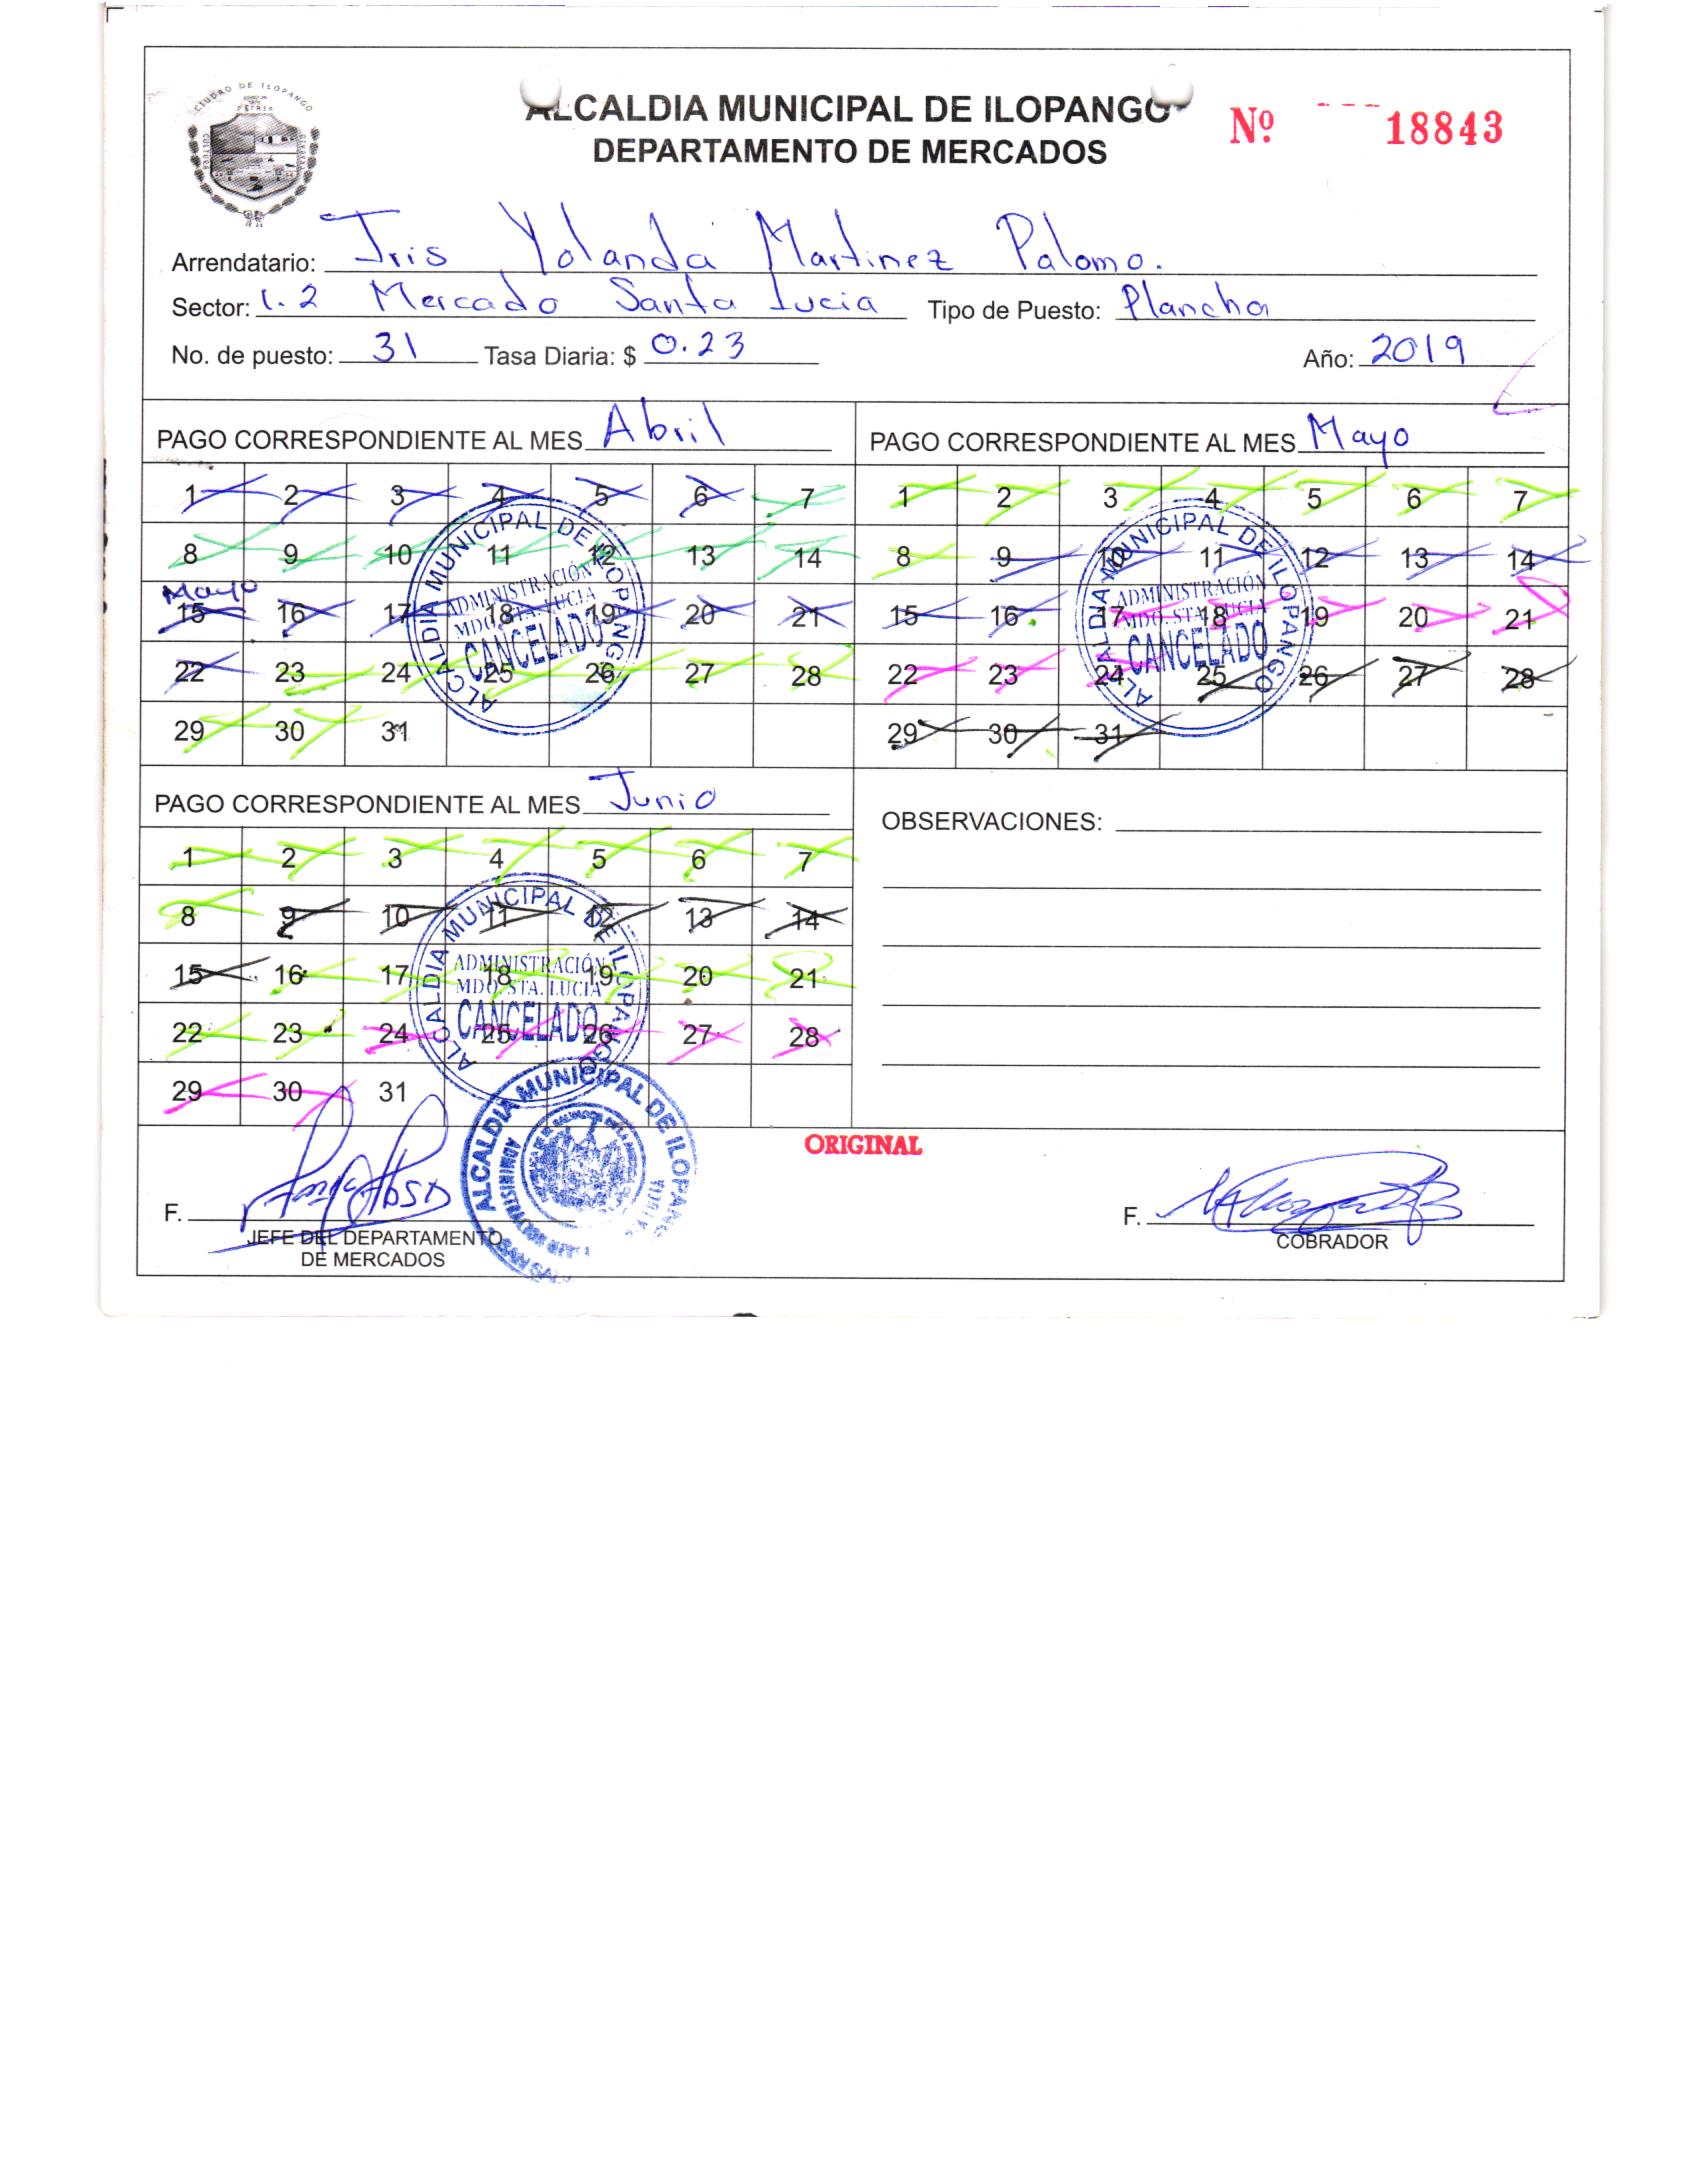 CIUDAD DE ILOPANGO
ALCALDIA MUNICIPAL DE ILOPANGO
DEPARTAMENTO DE MERCADOS
Nº 18843
Arrendatario: Iris Yolanda Martinez Palomo.
Sector: 1.2 Mercado Santa Lucia Tipo de Puesto: Plancha
No. de puesto: 31 Tasa Diaria: $ 0.23 Año: 2019
PAGO CORRESPONDIENTE AL MES Abril
1 2 3 4 5 6 7
8 9 10 11 12 13 14
Mayo
15 16 17 18 19 20 21
22 23 24 25 26 27 28
29 30 31
ALCALDIA MUNICIPAL DE ILOPANGO
ADMINISTRACIÓN
MDO. STA. LUCIA
CANCELADO
PAGO CORRESPONDIENTE AL MES Mayo
1 2 3 4 5 6 7
8 9 10 11 12 13 14
15 16 17 18 19 20 21
22 23 24 25 26 27 28
29 30 31
ALCALDIA MUNICIPAL DE ILOPANGO
ADMINISTRACIÓN
MDO. STA. LUCIA
CANCELADO
PAGO CORRESPONDIENTE AL MES Junio
1 2 3 4 5 6 7
8 9 10 11 12 13 14
15 16 17 18 19 20 21
22 23 24 25 26 27 28
29 30 31
ALCALDIA MUNICIPAL DE ILOPANGO
ADMINISTRACIÓN
MDO. STA. LUCIA
CANCELADO
OBSERVACIONES:
ORIGINAL
ALCALDIA MUNICIPAL DE ILOPANGO
F.
JEFE DEL DEPARTAMENTO
DE MERCADOS
F.
COBRADOR